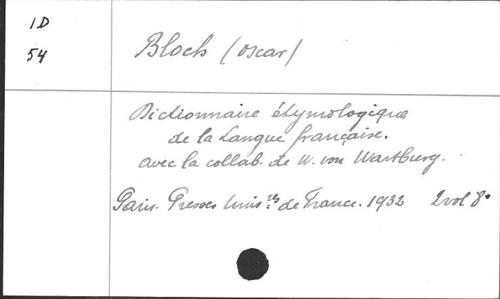 1D
54
Bloch (Oscar)
Dictionnaire étymologique
de la Langue française.
avec la collab. de W. von Wartburg.
Paris. Presses Univ.res de France. 1932 2 vol 8°